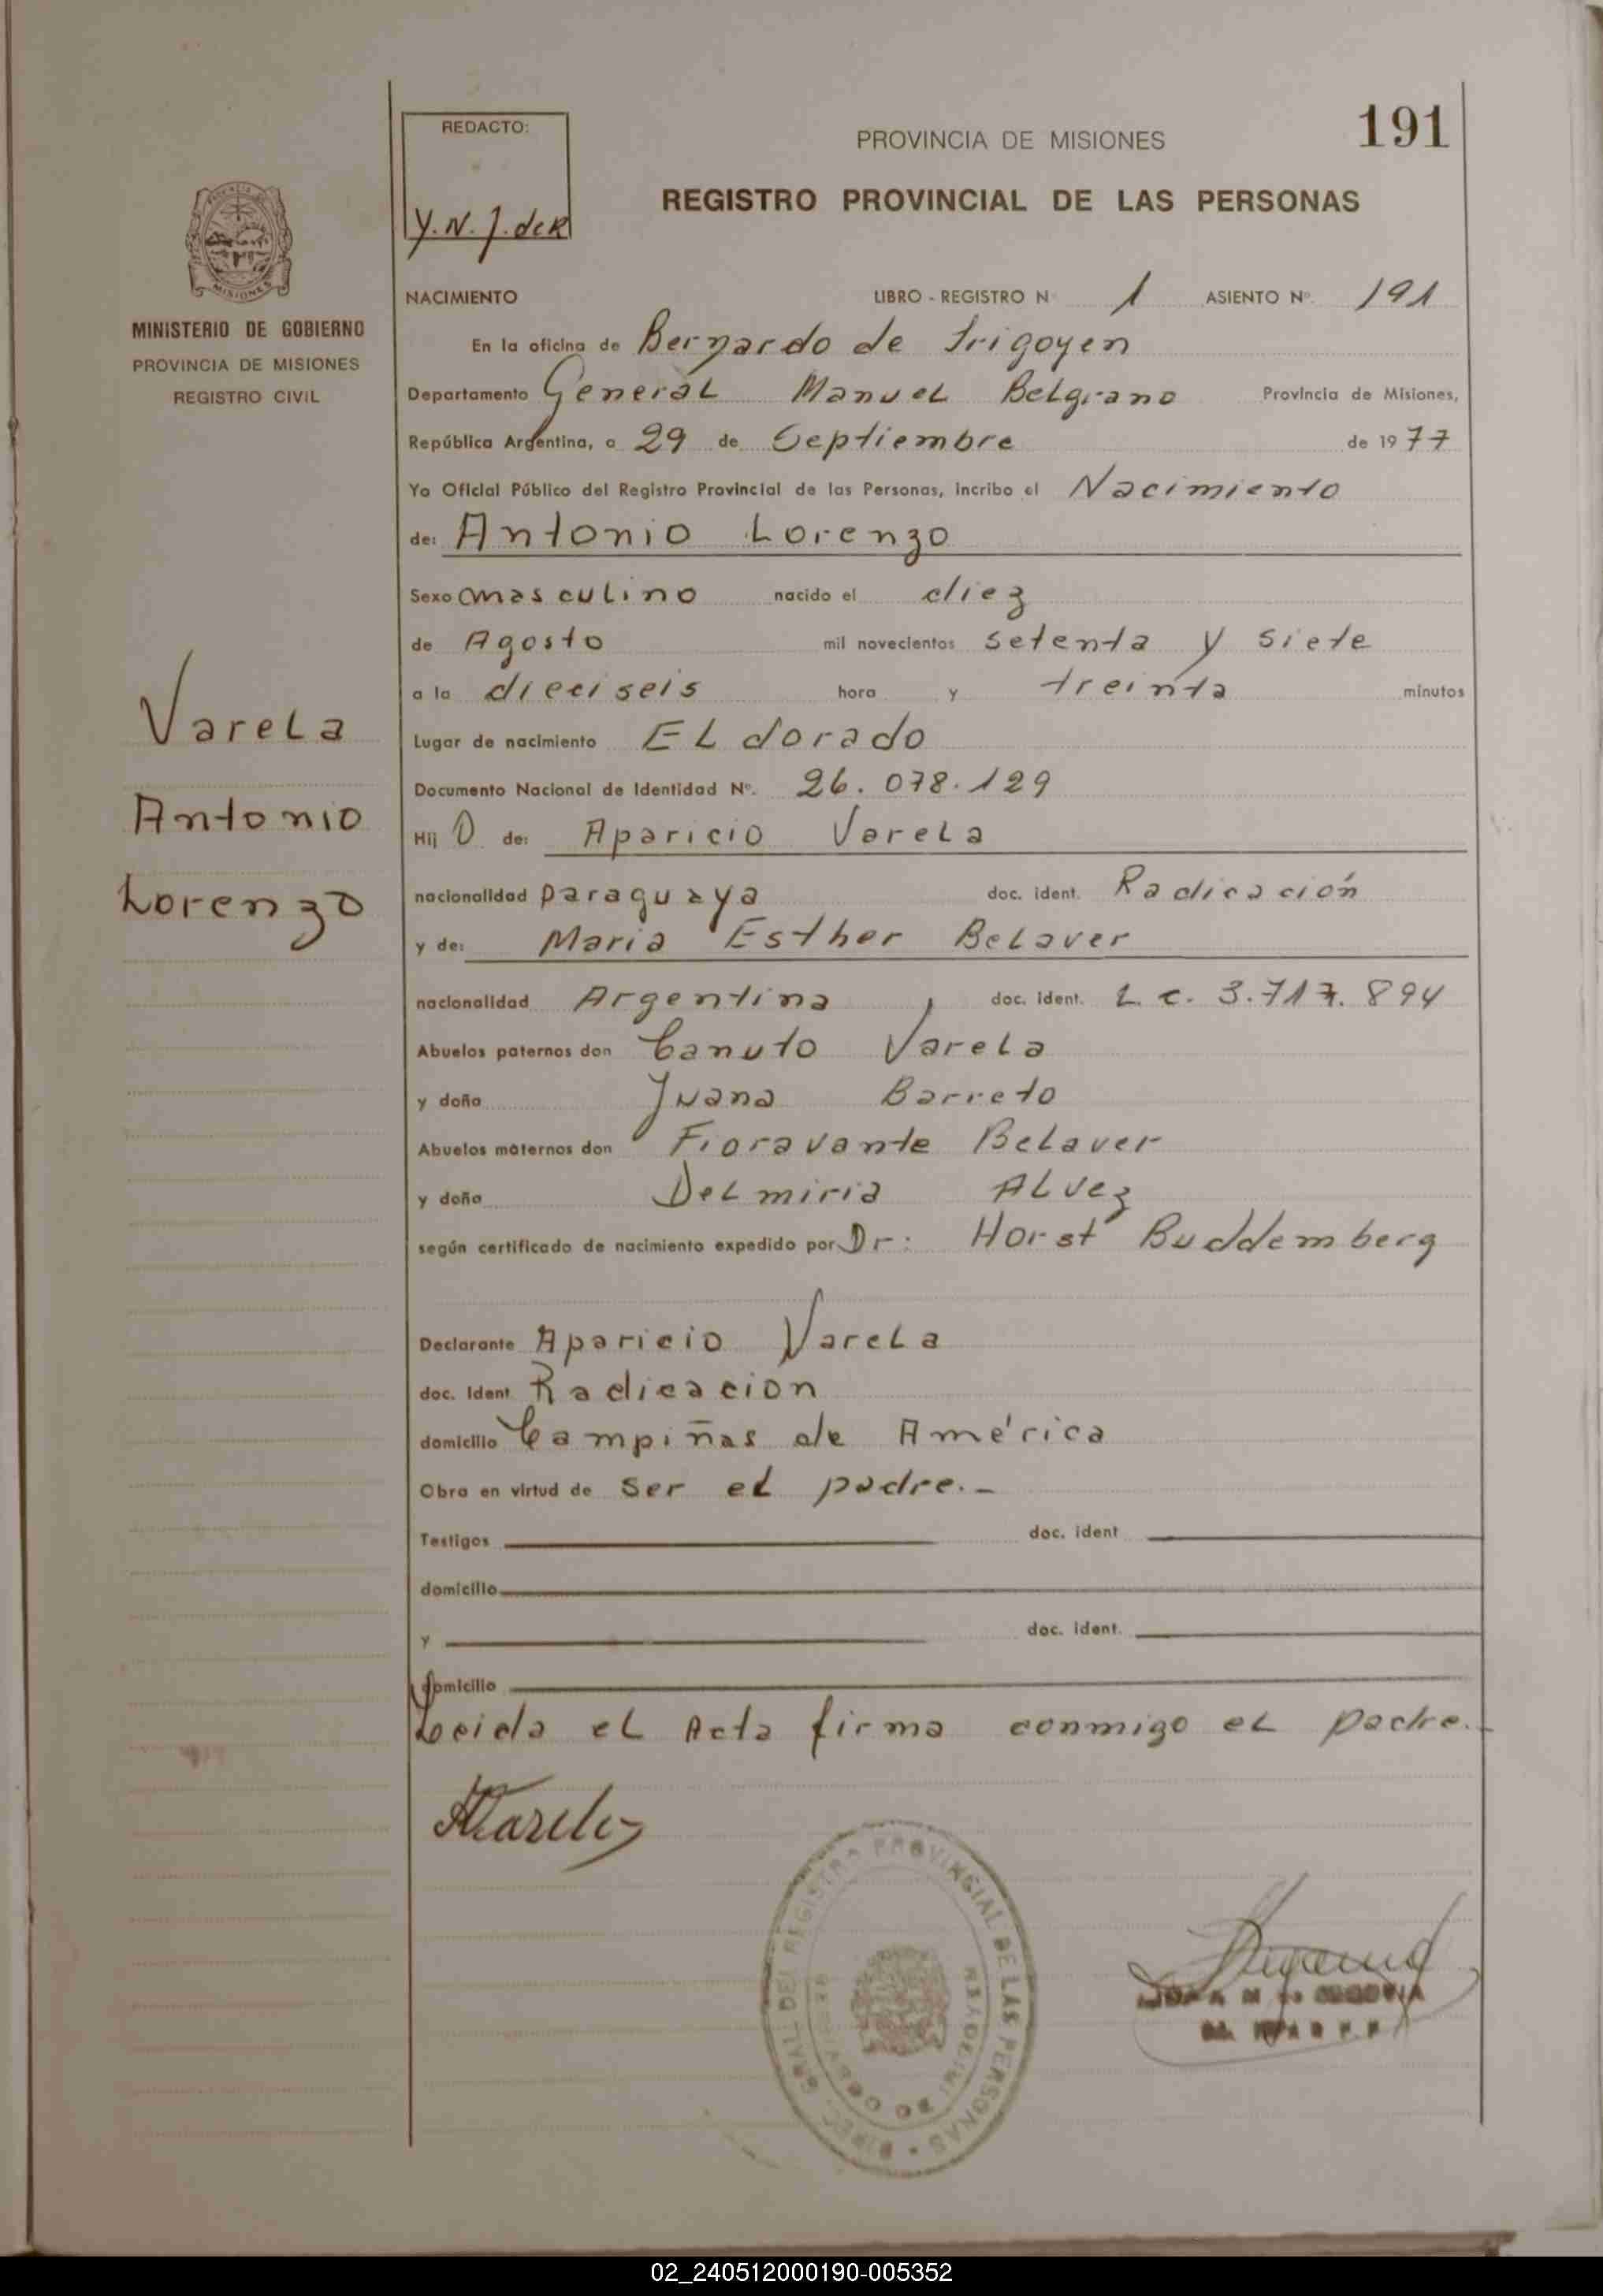 191
REDACTO:
Y. N. J. de R
PROVINCIA DE MISIONES
REGISTRO PROVINCIAL DE LAS PERSONAS
MISIONES
MINISTERIO DE GOBIERNO
PROVINCIA DE MISIONES
REGISTRO CIVIL
Varela
Antonio
Lorenzo
NACIMIENTO LIBRO - REGISTRO Nº 1 ASIENTO Nº. 191
En la oficina de Bernardo de Irigoyen
Departamento General Manuel Belgrano Provincia de Misiones,
República Argentina, a 29 de Septiembre de 1977
Yo Oficial Público del Registro Provincial de las Personas, incribo el Nacimiento
de: Antonio Lorenzo
Sexo masculino nacido el diez
de Agosto mil novecientos setenta y siete
a la dieciseis hora y treinta minutos
Lugar de nacimiento EL dorado
Documento Nacional de Identidad Nº. 26.078.129
Hij o de: Aparicio Varela
nacionalidad paraguaya doc. ident. Radicación
y de: Maria Esther Belaver
nacionalidad Argentina doc. ident. L. c. 3.717.894
Abuelos paternos don Canuto Varela
y doña Juana Barreto
Abuelos maternos don Fioravante Belaver
y doña Delmiria Alvez
según certificado de nacimiento expedido por Dr: Horst Buddemberg
Declarante Aparicio Varela
doc. Ident Radicacion
domicilio Campiñas de América
Obra en virtud de ser el padre.-
Testigos doc. ident
domicilio
y doc. ident.
domicilio
Leida el Acta firma conmigo el padre.-
AVarela
DIREC. GRAL. DEL REGISTRO PROVINCIAL DE LAS PERSONAS
02_240512000190-005352